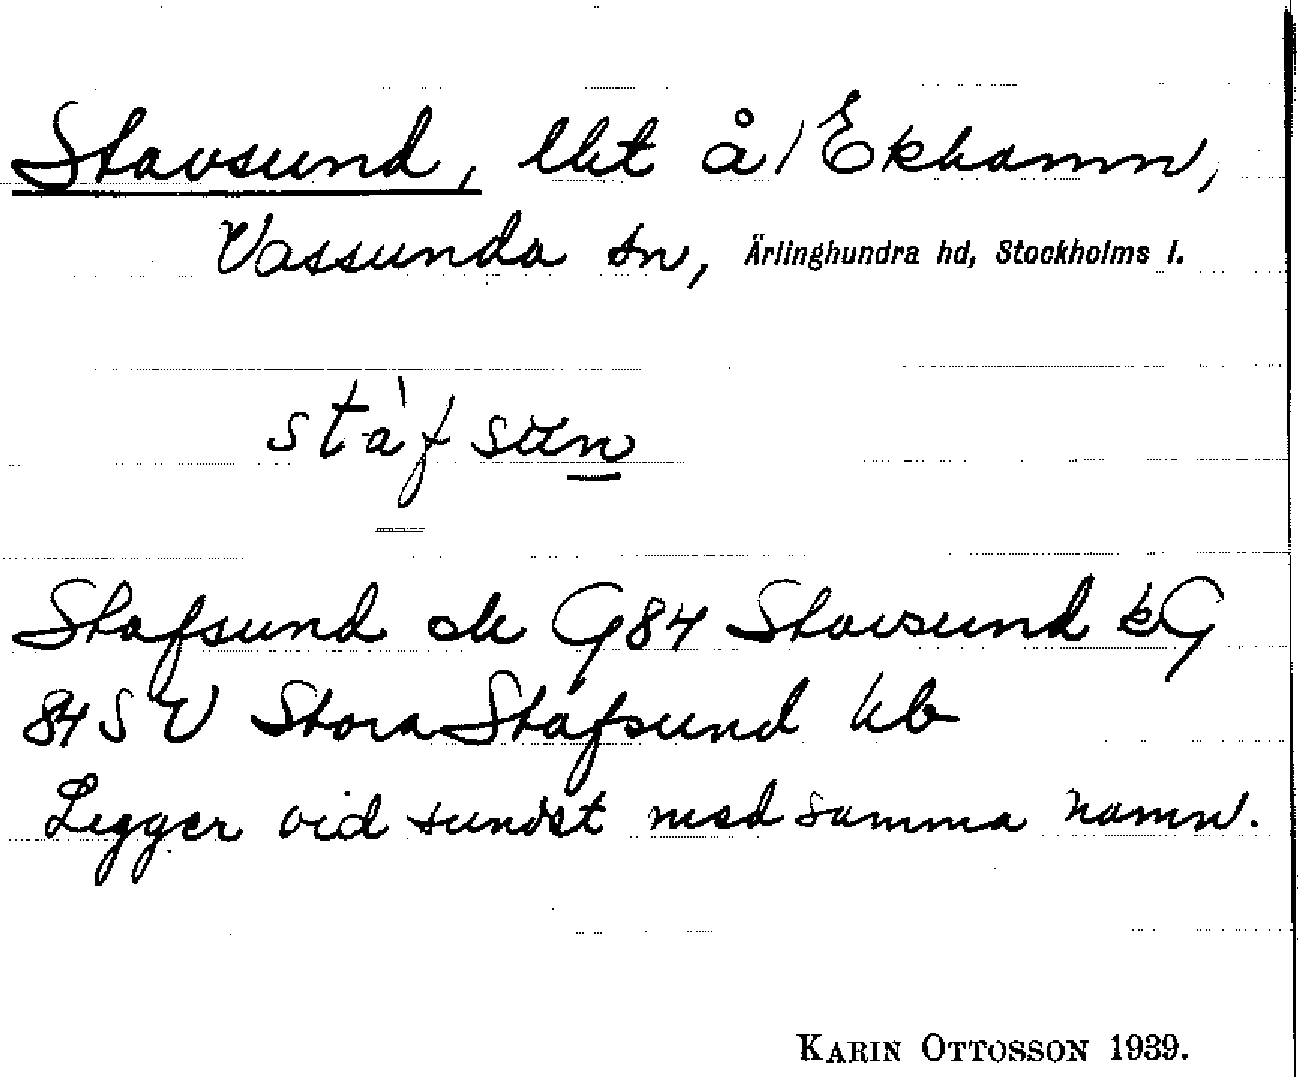 Stavsund, lht å / Ekhamn,
Vassunda sn, Ärlinghundra hd, Stockholms l.
stàfsun
Stafsund ek G84 Stavsund kG
84SV Stora Stafsund kb
Ligger vid sundet med samma namn.
KARIN OTTOSSON 1939.